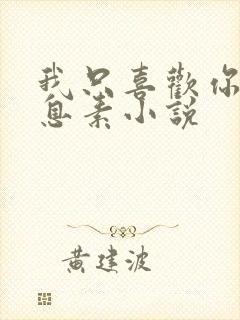 我只喜歡你
息素小說
黃建波